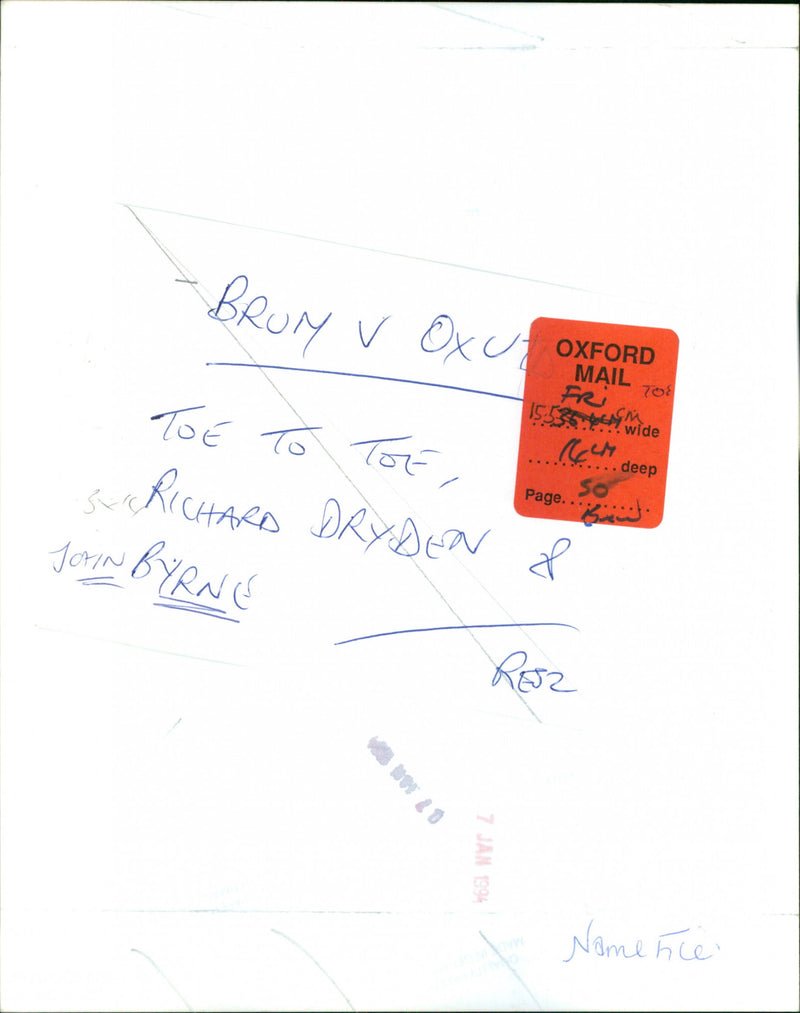 BRUM V OXUTD
OXFORD
MAIL
FRI
15.5 CM wide
14 CM deep
Page 50
TOE TO TOE,
RICHARD DRYDEN &
JOHN BYRNE
RESZ
7 JAN 1994
Name File